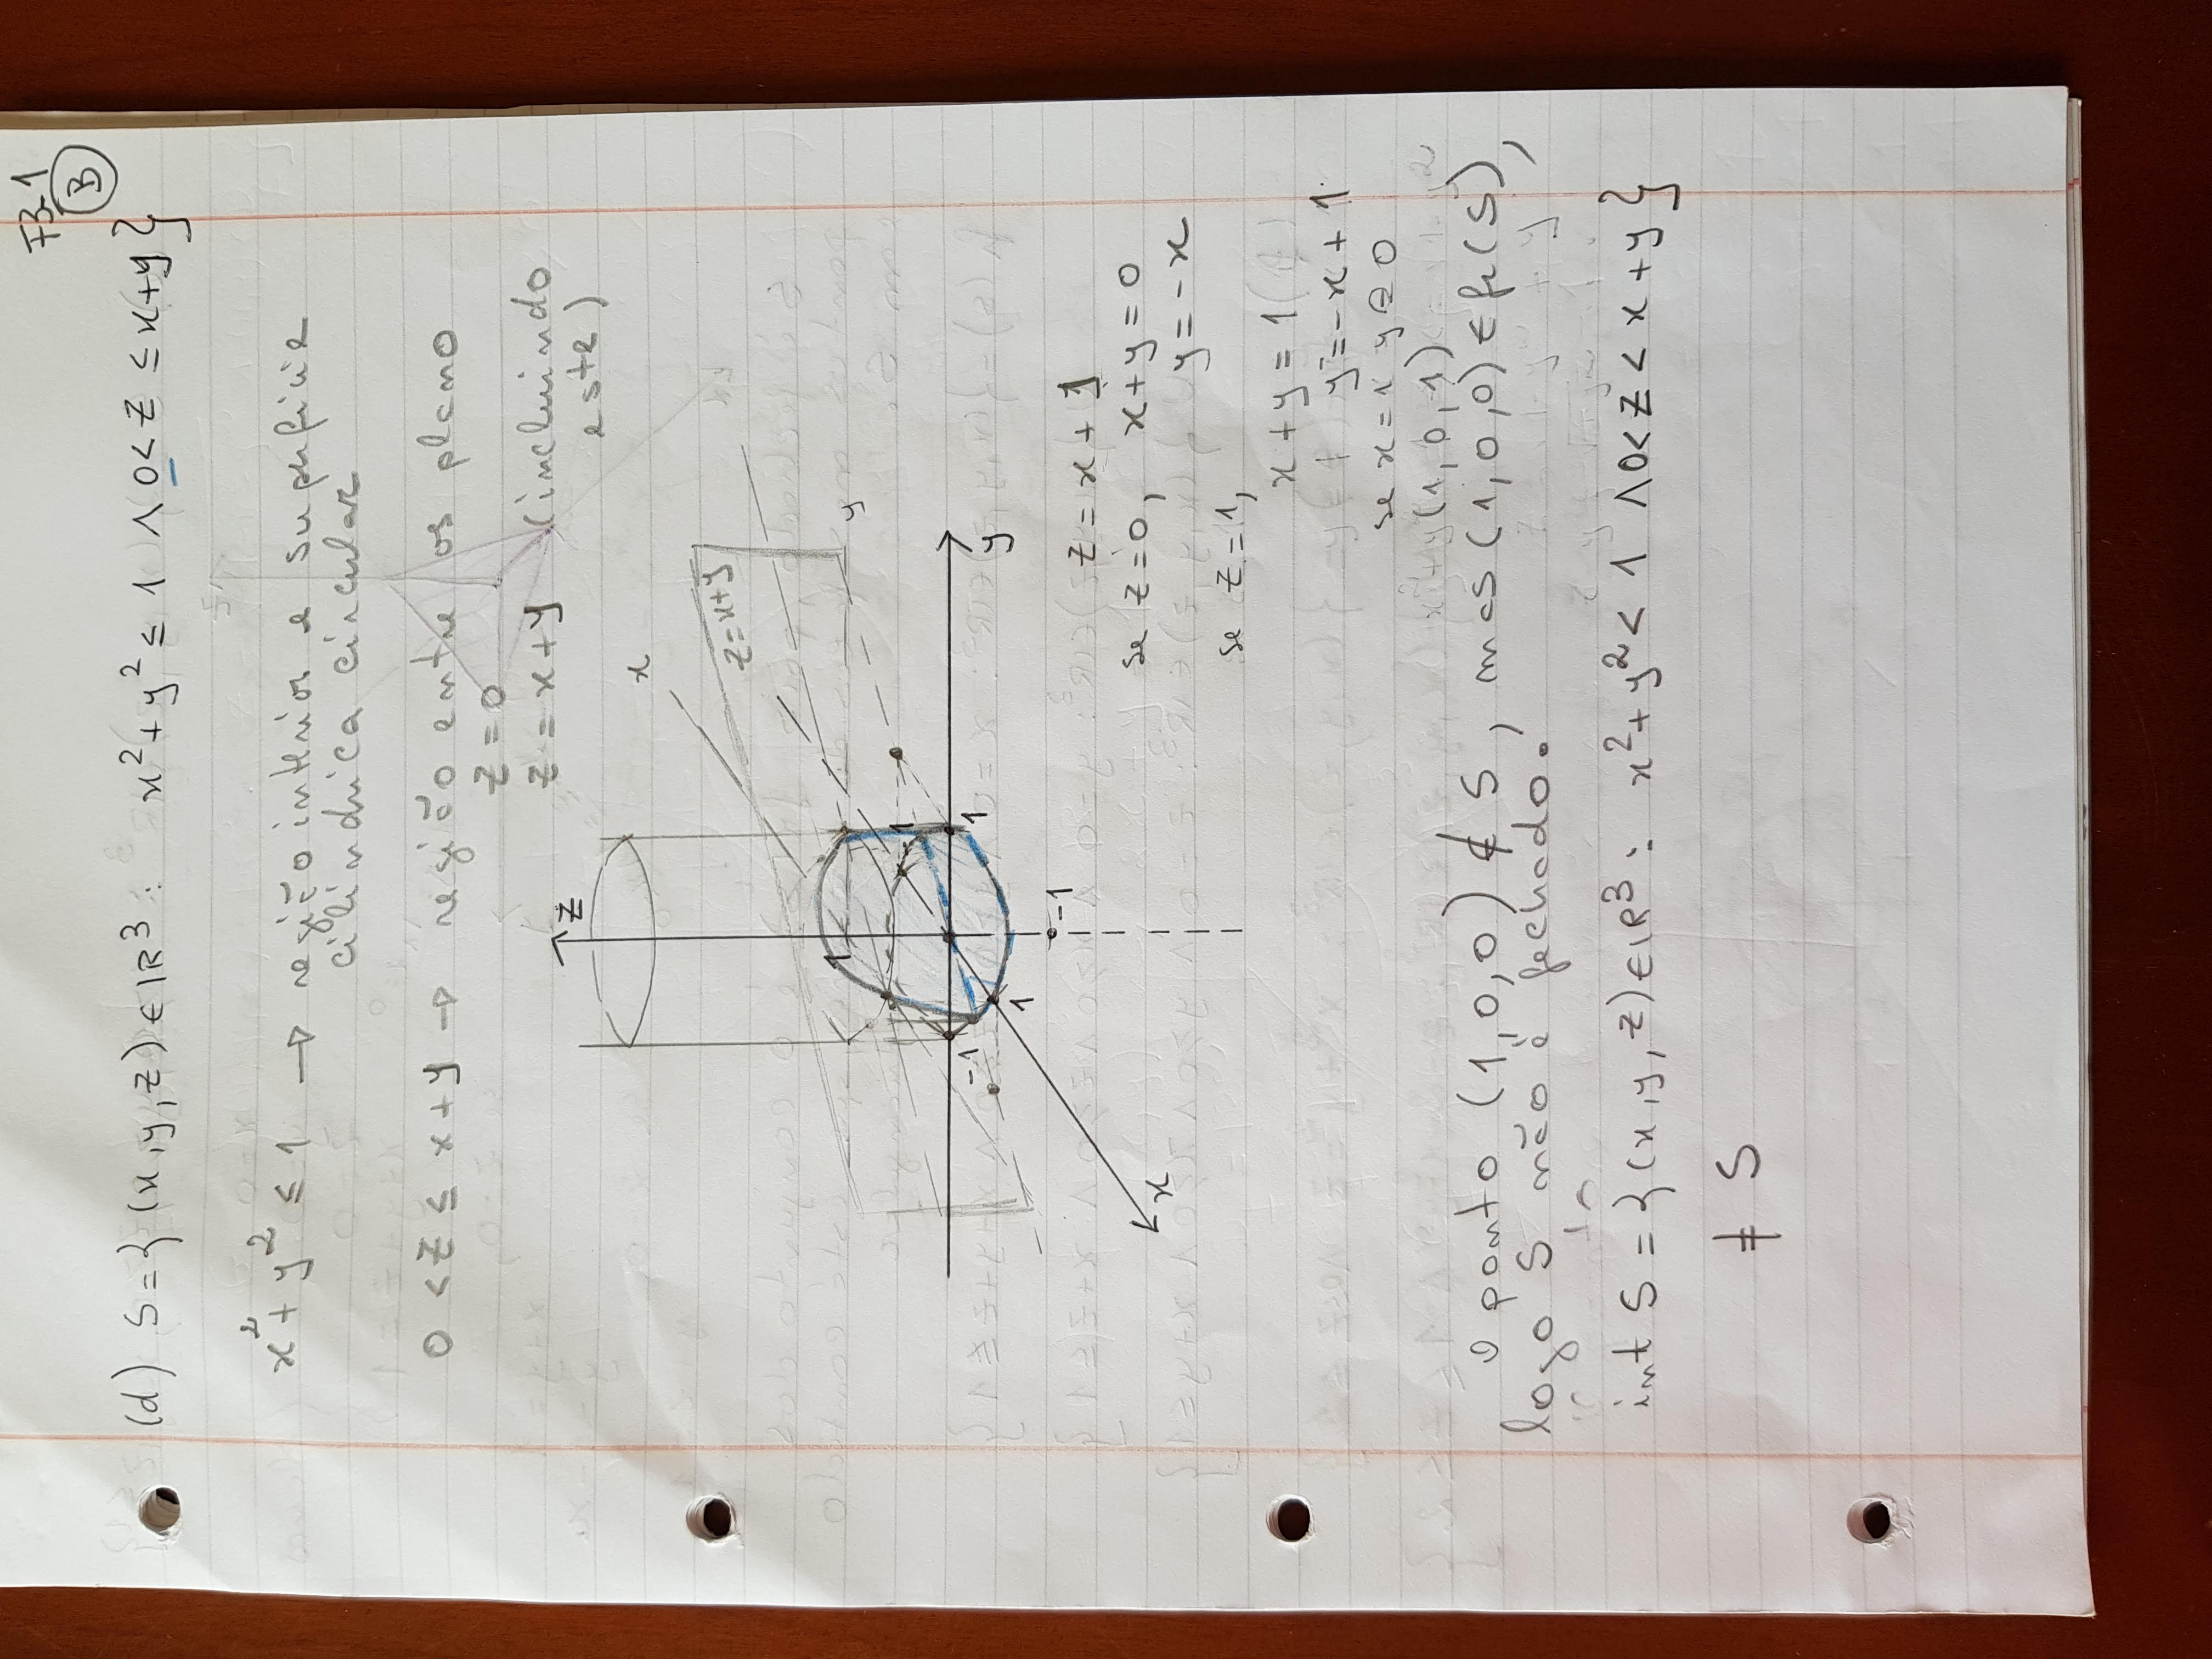 F3-1
B
(d) S = { (x,y,z) ∈ IR³ : x² + y² ≤ 1 ∧ 0 < z ≤ x+y }
x² + y² ≤ 1 → região interior e superfície
cilíndrica circular
0 < z ≤ x+y → região entre os plano
z = 0
z = x+y (incluindo
este)
z
x
z = x+y
y
1
1
-1
1
1
y
-1
x
z = x + 1
se z=0, x+y = 0
y = -x
se z=1,
x + y = 1
y = -x + 1
se x=1 y = 0
(1, 0, 1)
o ponto (1,0,0) ∉ S, mas (1,0,0) ∈ fr(S),
logo S não é fechado.
int S = { (x,y,z) ∈ IR³ : x² + y² < 1 ∧ 0 < z < x + y }
≠ S